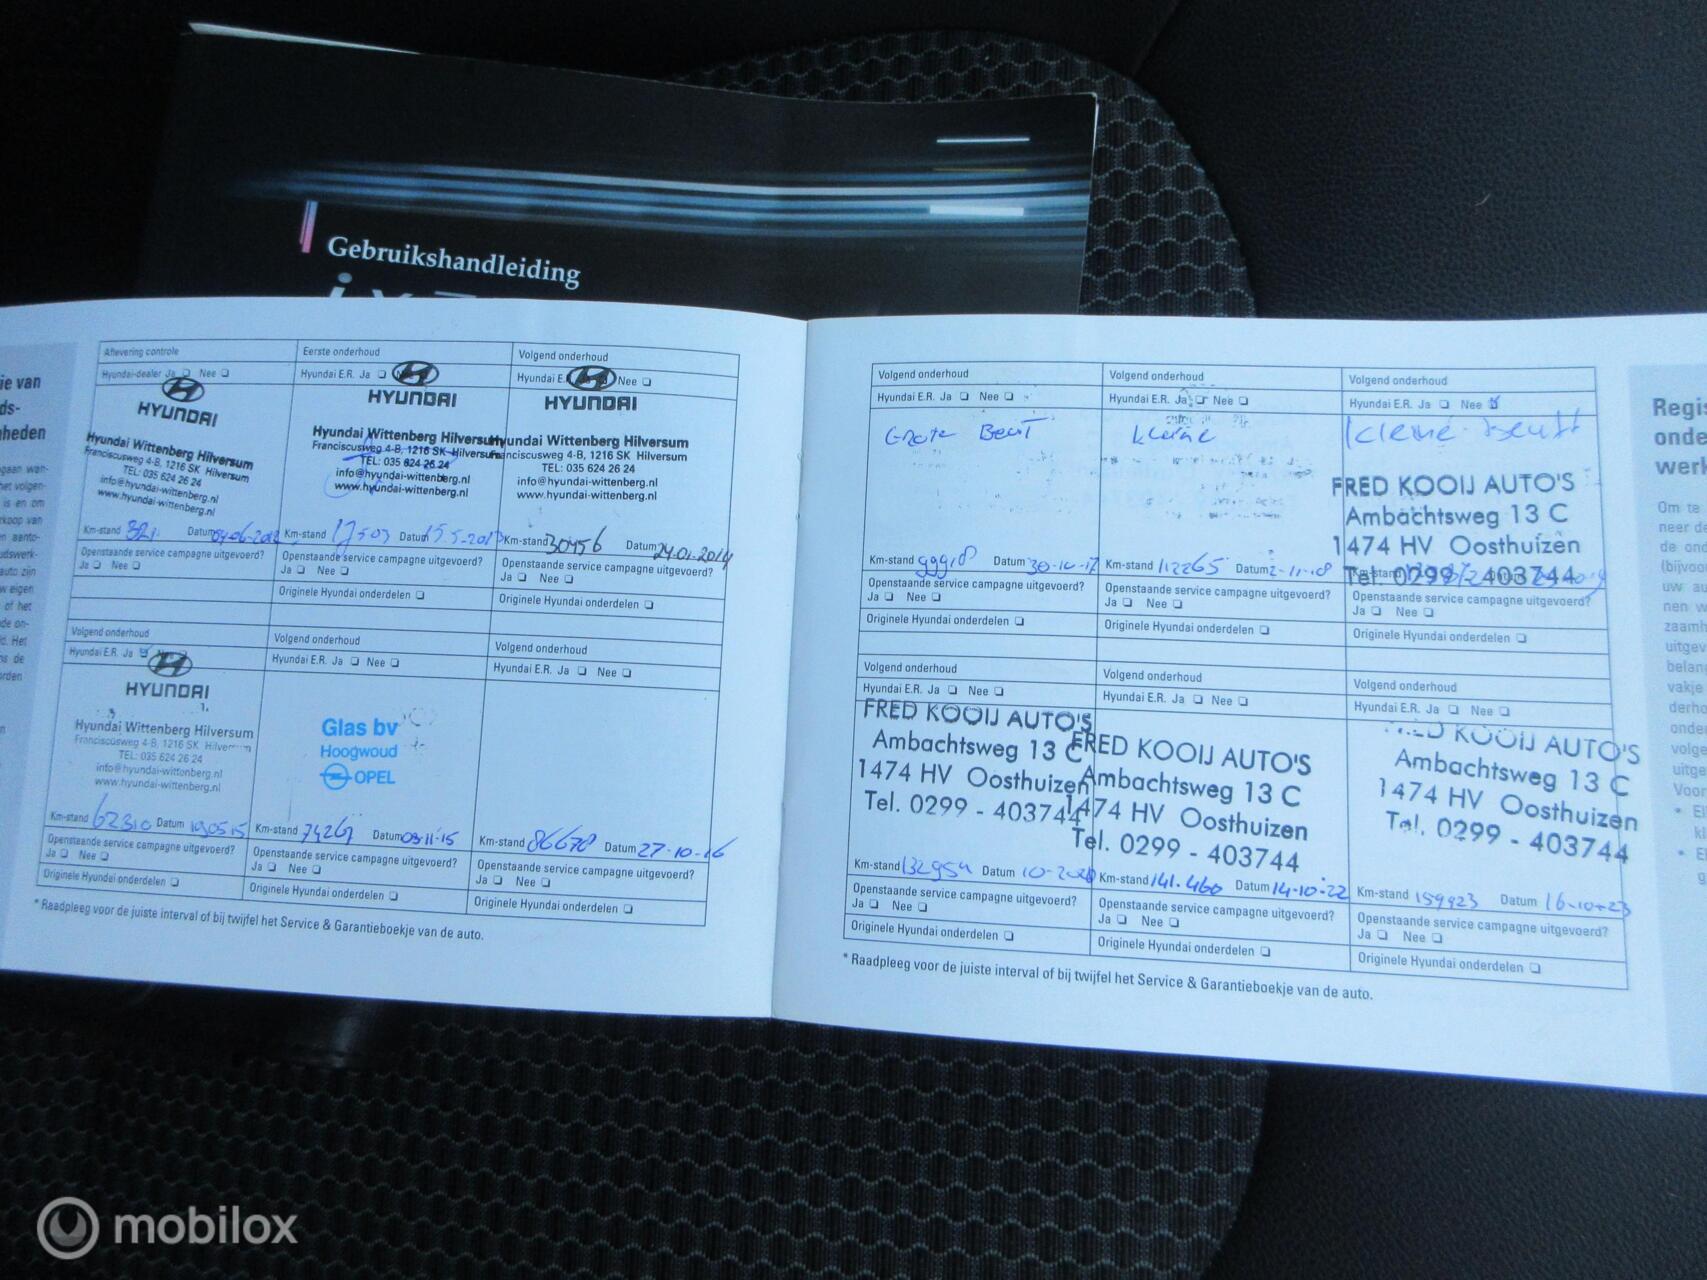 Gebruikshandleiding
Aflevering controle
Hyundai-dealer Ja Nee
HYUNDAI
Hyundai Wittenberg Hilversum
Franciscusweg 4-B, 1216 SK Hilversum
TEL: 035 624 26 24
info@hyundai-wittenberg.nl
www.hyundai-wittenberg.nl
Km-stand Datum
Openstaande service campagne uitgevoerd?
Ja Nee
Eerste onderhoud
Hyundai E.R. Ja
HYUNDAI
Hyundai Wittenberg Hilversum
Franciscusweg 4-B, 1216 SK Hilversum
TEL: 035 624 26 24
info@hyundai-wittenberg.nl
www.hyundai-wittenberg.nl
Km-stand 17503 Datum 15-5-2013
Openstaande service campagne uitgevoerd?
Ja Nee
Originele Hyundai onderdelen
Volgend onderhoud
Hyundai E. Nee
HYUNDAI
Hyundai Wittenberg Hilversum
Franciscusweg 4-B, 1216 SK Hilversum
TEL: 035 624 26 24
info@hyundai-wittenberg.nl
www.hyundai-wittenberg.nl
Km-stand 30456 Datum 24-01-2014
Openstaande service campagne uitgevoerd?
Ja Nee
Originele Hyundai onderdelen
Volgend onderhoud
Hyundai E.R. Ja
HYUNDAI
Hyundai Wittenberg Hilversum
Franciscusweg 4-B, 1216 SK Hilversum
TEL: 035 624 26 24
info@hyundai-wittenberg.nl
www.hyundai-wittenberg.nl
Km-stand 62310 Datum 190515
Openstaande service campagne uitgevoerd?
Ja Nee
Originele Hyundai onderdelen
Volgend onderhoud
Hyundai E.R. Ja Nee
Glas bv
Hoogwoud
OPEL
Km-stand 74261 Datum 03-11-15
Openstaande service campagne uitgevoerd?
Ja Nee
Originele Hyundai onderdelen
Volgend onderhoud
Hyundai E.R. Ja Nee
Km-stand 86678 Datum 27-10-16
Openstaande service campagne uitgevoerd?
Ja Nee
Originele Hyundai onderdelen
* Raadpleeg voor de juiste interval of bij twijfel het Service & Garantieboekje van de auto.
Volgend onderhoud
Hyundai E.R. Ja Nee
Grote Beurt
Km-stand 99918 Datum 30-10-17
Openstaande service campagne uitgevoerd?
Ja Nee
Originele Hyundai onderdelen
Volgend onderhoud
Hyundai E.R. Ja Nee
kleine
Km-stand 112265 Datum 2-11-18
Openstaande service campagne uitgevoerd?
Ja Nee
Originele Hyundai onderdelen
Volgend onderhoud
Hyundai E.R. Ja Nee
kleine beurt
FRED KOOIJ AUTO'S
Ambachtsweg 13 C
1474 HV Oosthuizen
Tel. 0299 - 403744
Openstaande service campagne uitgevoerd?
Ja Nee
Originele Hyundai onderdelen
Volgend onderhoud
Hyundai E.R. Ja Nee
FRED KOOIJ AUTO'S
Ambachtsweg 13 C
1474 HV Oosthuizen
Tel. 0299 - 403744
Km-stand 132954 Datum 10-2020
Openstaande service campagne uitgevoerd?
Ja Nee
Originele Hyundai onderdelen
Volgend onderhoud
Hyundai E.R. Ja Nee
FRED KOOIJ AUTO'S
Ambachtsweg 13 C
1474 HV Oosthuizen
Tel. 0299 - 403744
Km-stand 141.460 Datum 14-10-22
Openstaande service campagne uitgevoerd?
Ja Nee
Originele Hyundai onderdelen
Volgend onderhoud
Hyundai E.R. Ja Nee
FRED KOOIJ AUTO'S
Ambachtsweg 13 C
1474 HV Oosthuizen
Tel. 0299 - 403744
Km-stand 159923 Datum 16-10-23
Openstaande service campagne uitgevoerd?
Ja Nee
Originele Hyundai onderdelen
* Raadpleeg voor de juiste interval of bij twijfel het Service & Garantieboekje van de auto.
Regis
onde
werk
Om te
neer de
de ond
(bijvoo
uw au
nen w
zaamh
uitgev
belang
vakje
derho
onder
volge
uitge
Voor
mobilox